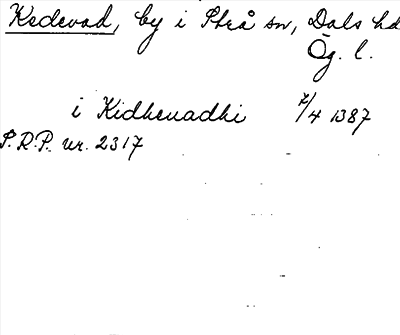 Kedevad, by i Strå sn, Dals hd
Ög. l.
i Kidhevadhi 7/4 1387
S.R.P. nr. 2317